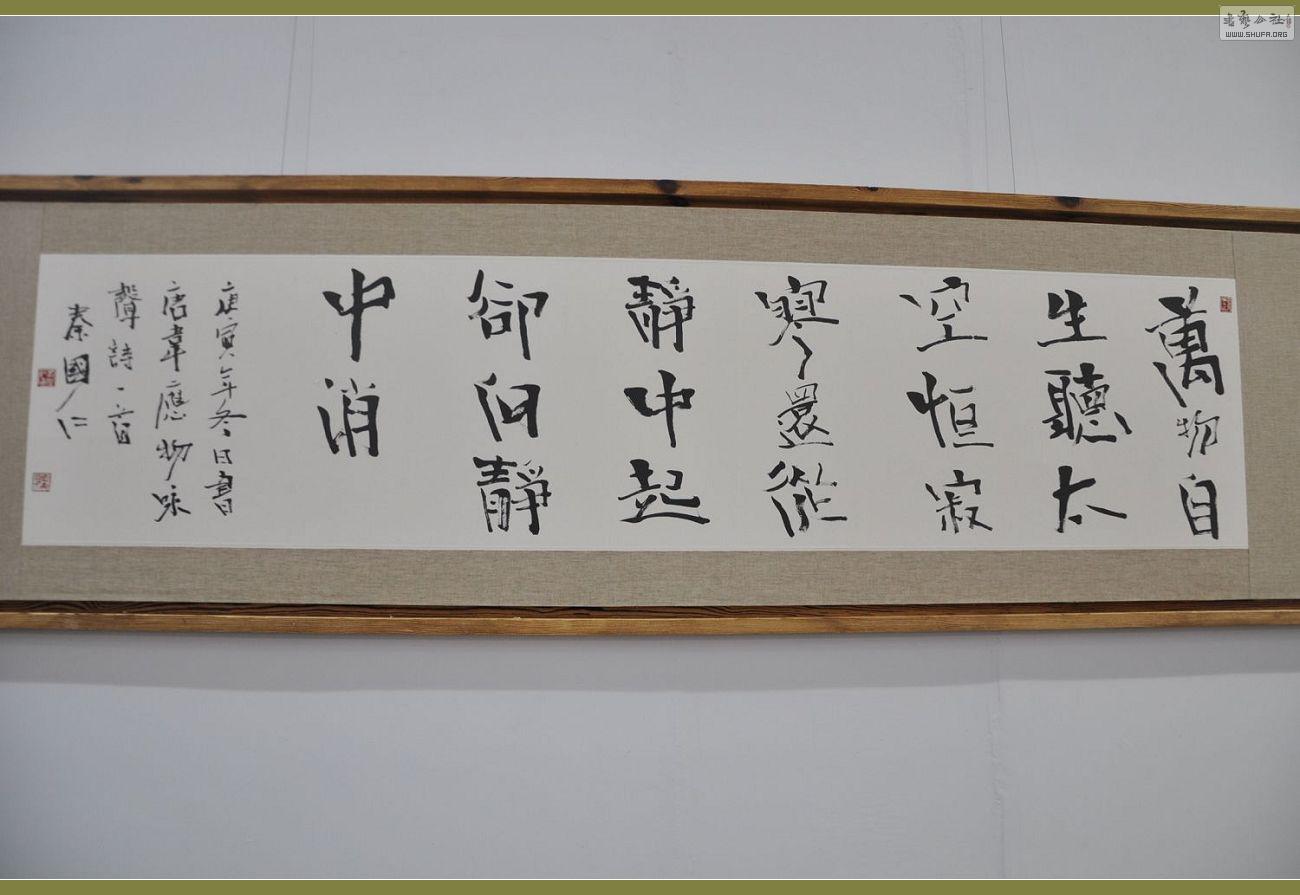 萬物自
生聽太
空恒寂
寥還從
靜中起
卻向靜
中消
庚寅年冬日書
唐韋應物咏
聲詩一首
秦國仁
書藝公社
WWW.SHUFA.ORG